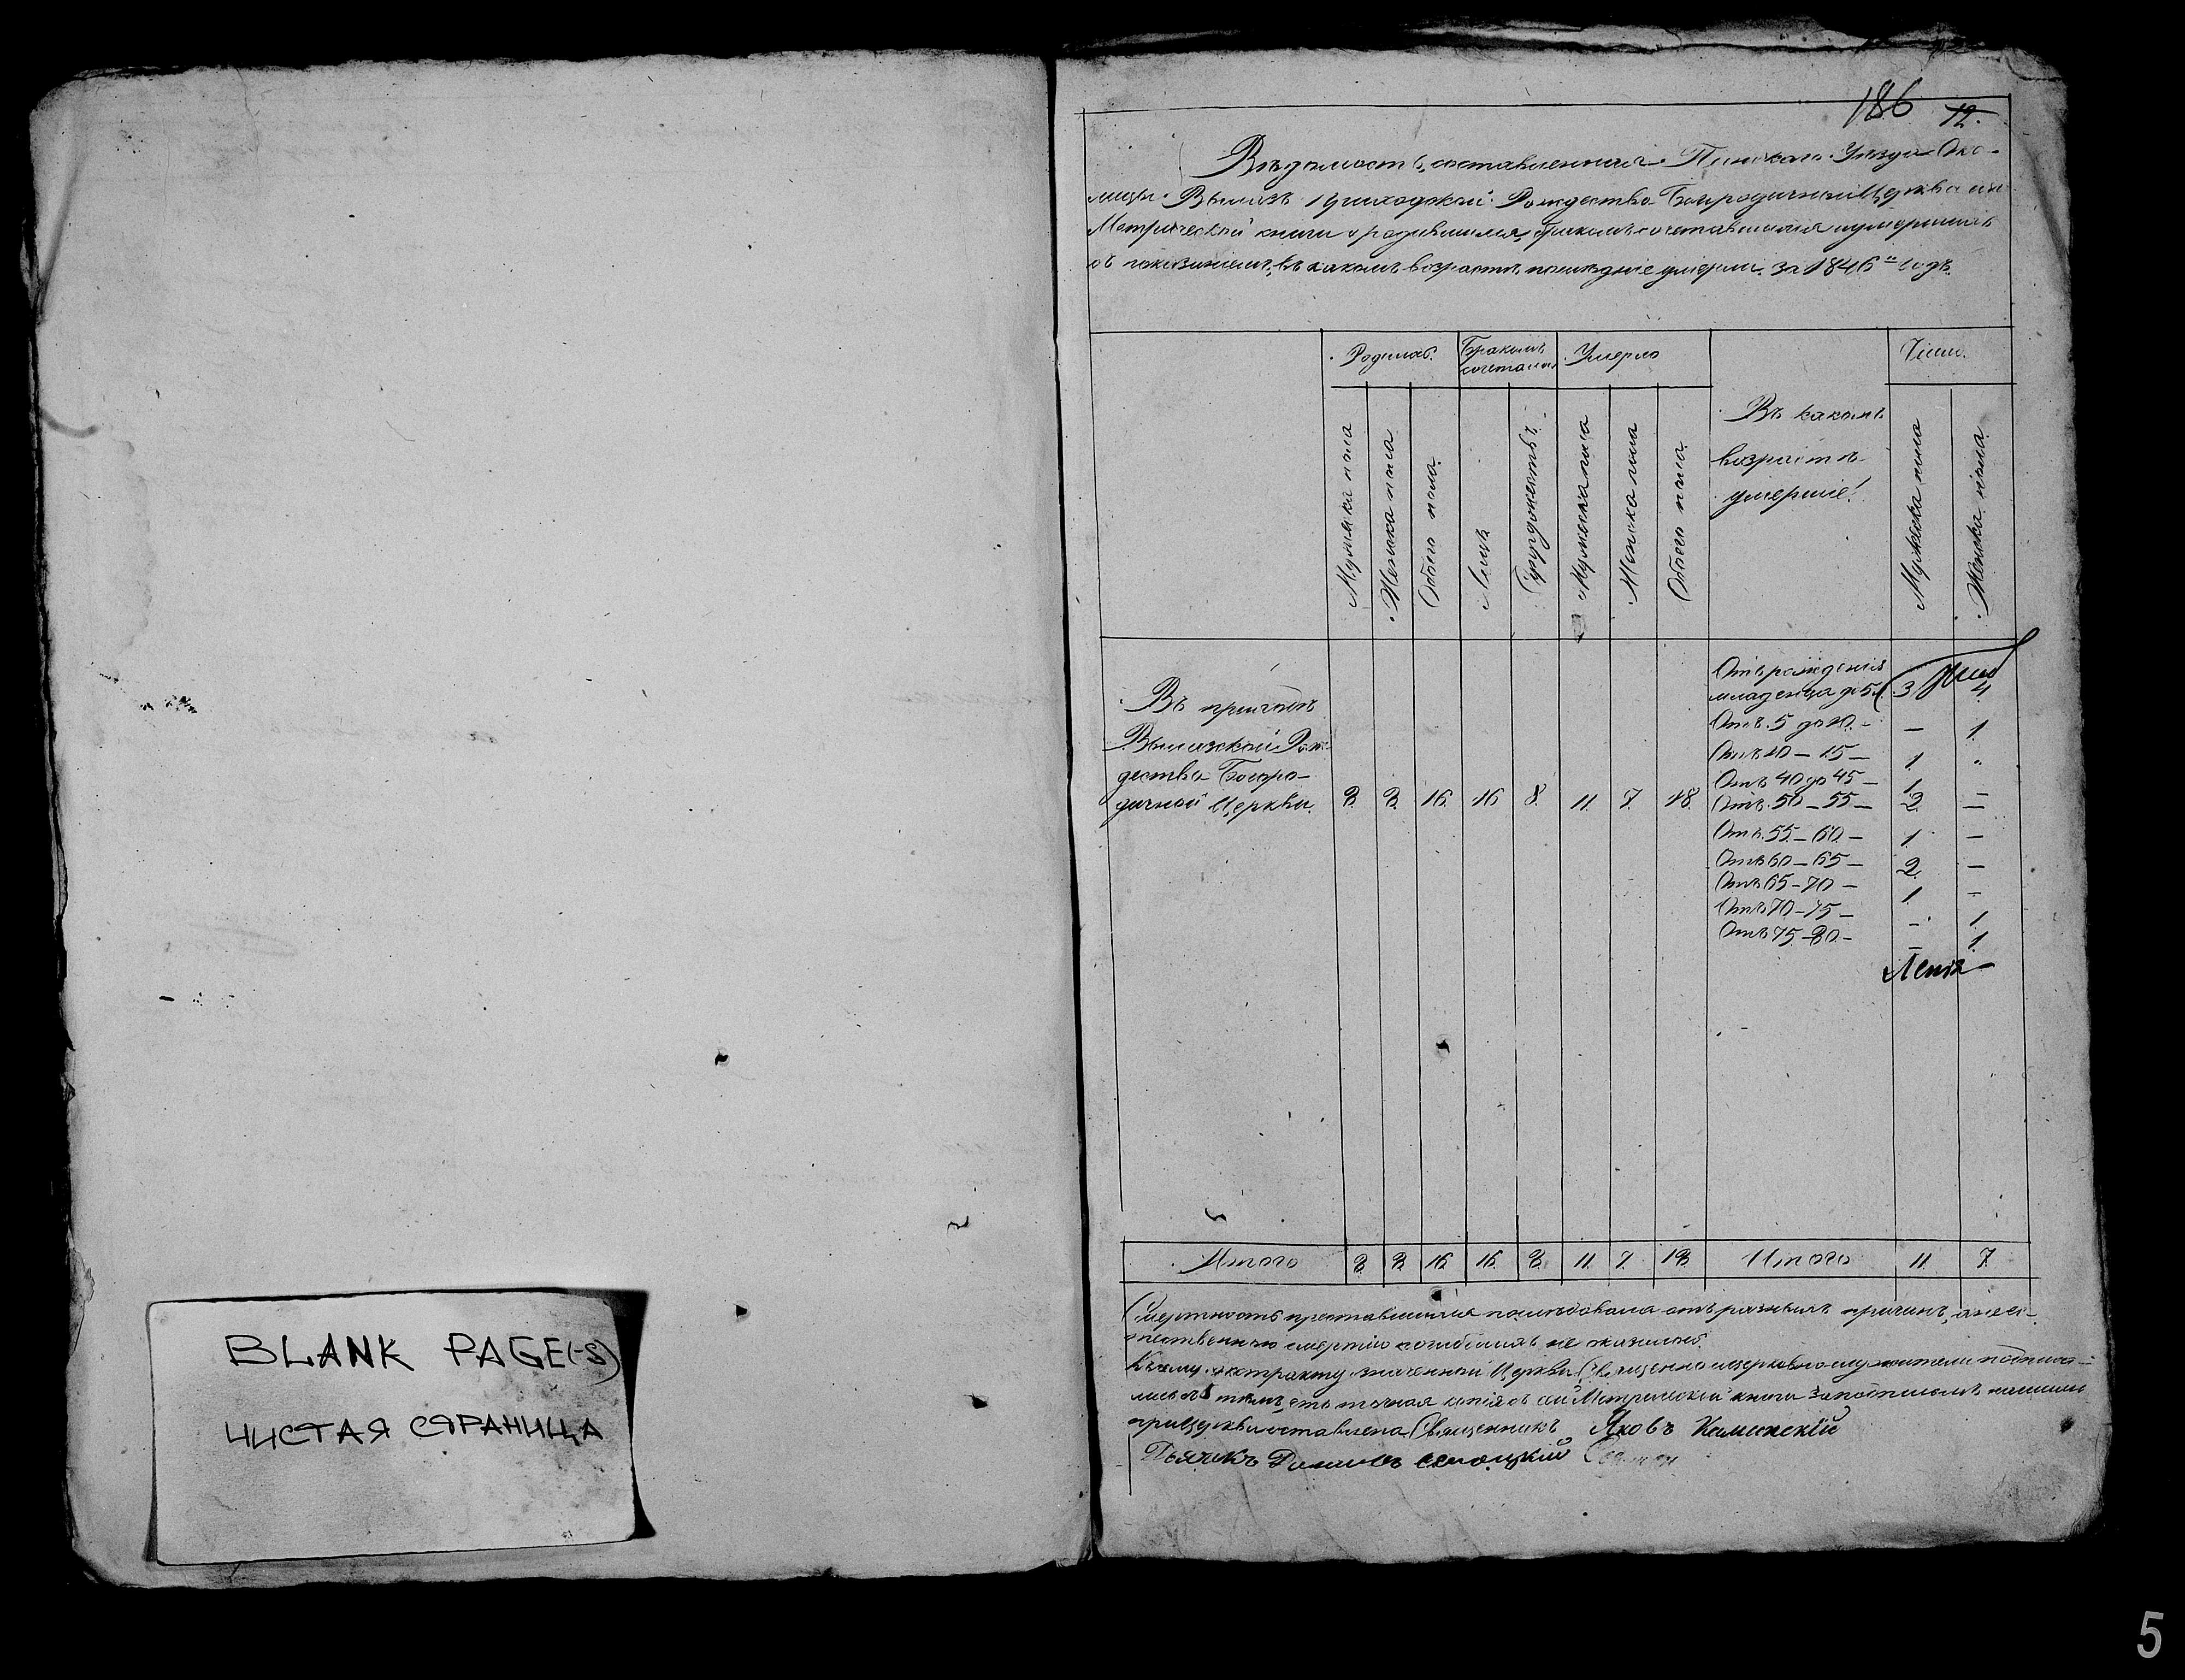 BLANK PAGE(-S)
ЧИСТАЯ СТРАНИЦА
186 12.
Вѣдомость, составленная Пинскаго Уѣзда Око-
лицы Вылазъ приходской Рождество-Богородичной Церкви изъ
Метрической книги о родившихся, бракомъ сочетавшихся и умершихъ
съ показаніемъ, въ какомъ возрастѣ послѣдніе умерли. за 1846 годъ.
Родилось. Бракомъ Умерло Число.
сочеталось
Въ какомъ
возрастѣ
умершіе.
Мужска пола
Женска пола
Обоего пола
Лицъ
Супружествъ
Мужска пола
Женска пола
Обоего пола
Мужска пола
Женска пола
Отъ рожденія
младенца до 5 3 4
Въ причтѣ
Вылазской Рож-
дество-Богоро-
дичной Церкви. 8. 8. 16. 16 8. 11. 7. 18.
Отъ 5 до 10 — — 1.
Отъ 10 — 15 — 1
Отъ 40 до 45 — 1
Отъ 50 — 55 — 2 —
Отъ 55 — 60 — 1 —
Отъ 60 — 65 — 2 —
Отъ 65 — 70 — 1 —
Отъ 70 — 75 — - 1.
Отъ 75 — 80 — — 1.
Итого 8. 8. 16. 16. 8. 11. 7. 18 Итого 11. 7.
Смертность преставшихся послѣдовала отъ разныхъ причинъ, а не-
естественною смертію погибшихъ не оказалось.
Къ сему экстракту значенной Церкви Священно церковно-служители подписа-
лись въ томъ, что точная копія съ сей Метрической книги за подписомъ нашимъ
при Церкви оставлена Священникъ Яковъ Каминскій
Дьячекъ
5